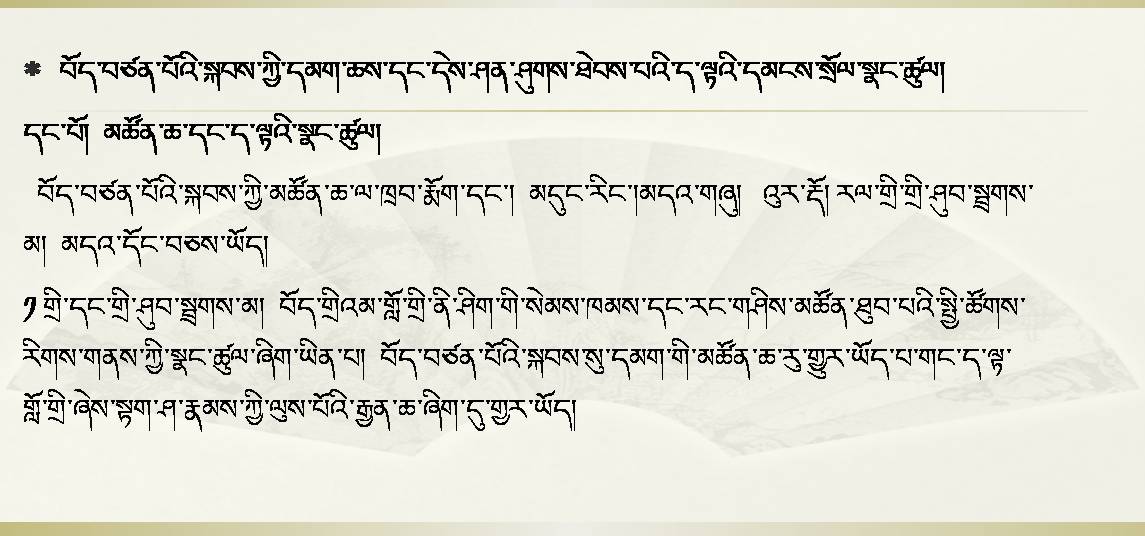 * བོད་བཙན་པོའི་སྐབས་ཀྱི་དམག་ཆས་དང་དེས་ཤན་ཤུགས་ཐེབས་པའི་ད་ལྟའི་དམངས་སྲོལ་སྣང་ཚུལ།
དང་པོ།  མཚོན་ཆ་དང་ད་ལྟའི་སྣང་ཚུལ།
བོད་བཙན་པོའི་སྐབས་ཀྱི་མཚོན་ཆ་ལ་ཁྲབ་རྨོག་དང་།  མདུང་རིང་།མདའ་གཞུ།   འུར་རྡོ། རལ་གྲི་གྲི་ཤུབ་སྦྲགས་
མ།  མདའ་དོང་བཅས་ཡོད།
༡ གྲི་དང་གྲི་ཤུབ་སྦྲགས་མ།  བོད་གྲིའམ་གློ་གྲི་ནི་ཤིག་གི་སེམས་ཁམས་དང་རང་གཤིས་མཚོན་ཐུབ་པའི་སྤྱི་ཚོགས་
རིགས་གནས་ཀྱི་སྣང་ཚུལ་ཞིག་ཡིན་པ།  བོད་བཙན་པོའི་སྐབས་སུ་དམག་གི་མཚོན་ཆ་རུ་གྱུར་ཡོད་པ་གང་ད་ལྟ་
གློ་གྲི་ཞེས་སྟག་ཤ་རྣམས་ཀྱི་ལུས་པོའི་རྒྱན་ཆ་ཞིག་ཏུ་གྱར་ཡོད།